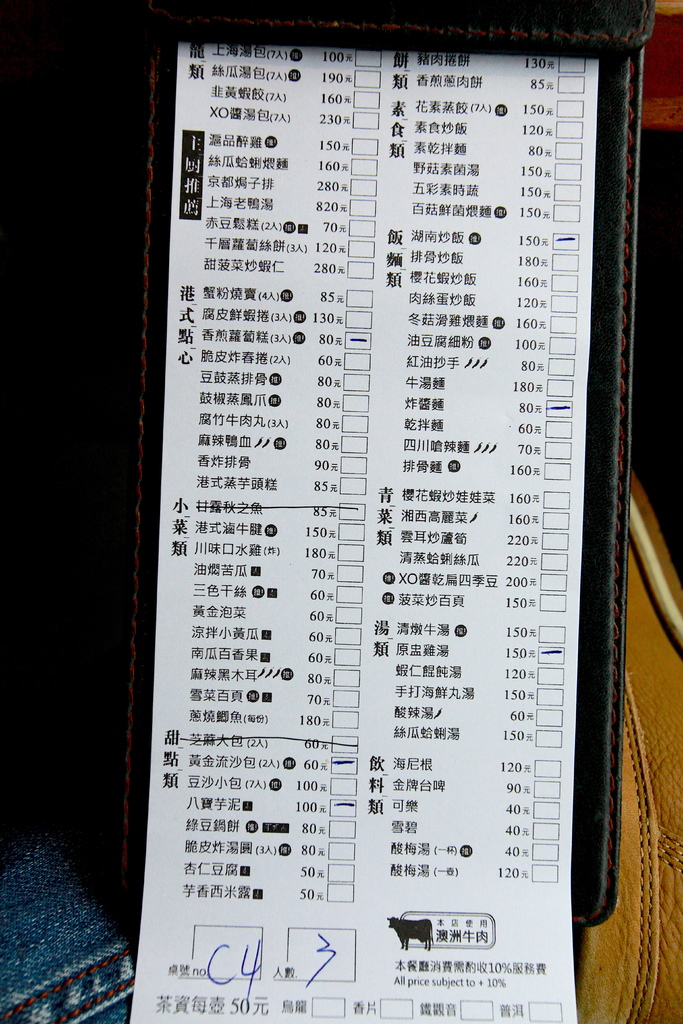 籠類
上海湯包(7人) 推! 100元
絲瓜湯包(7人) 推! 190元
韭黃蝦餃(7人) 160元
XO醬湯包(7人) 230元
主廚推薦
滬品醉雞 推! 150元
絲瓜蛤蜊煨麵 160元
京都焗子排 280元
上海老鴨湯 820元
赤豆鬆糕(2人) 推! 70元
千層蘿蔔絲餅(3人) 120元
甜菠菜炒蝦仁 280元
港式點心
蟹粉燒賣(4人) 推! 85元
腐皮鮮蝦捲(3人) 推! 130元
香煎蘿蔔糕(3人) 推! 80元
脆皮炸春捲(2人) 60元
豆鼓蒸排骨 推! 80元
鼓椒蒸鳳爪 推! 80元
腐竹牛肉丸(3人) 80元
麻辣鴨血 推! 80元
香炸排骨 90元
港式蒸芋頭糕 85元
小菜類
甘露秋之魚 85元
港式滷牛腱 推! 150元
川味口水雞(炸) 180元
油燜苦瓜 70元
三色干絲 推! 60元
黃金泡菜 60元
涼拌小黃瓜 60元
南瓜百香果 60元
麻辣黑木耳 推! 80元
雪菜百頁 推! 70元
蔥燒鯽魚(每份) 180元
甜點類
芝麻大包(2人) 60元
黃金流沙包(2人) 推! 60元
豆沙小包(7人) 推! 100元
八寶芋泥 100元
綠豆鍋餅 推! 80元
脆皮炸湯圓(3人) 推! 80元
杏仁豆腐 50元
芋香西米露 50元
餅類
豬肉捲餅 130元
香煎蔥肉餅 85元
素食類
花素蒸餃(7人) 推! 150元
素食炒飯 120元
素乾拌麵 80元
野菇素菌湯 150元
五彩素時蔬 150元
百菇鮮菌煨麵 推! 150元
飯麵類
湖南炒飯 推! 150元
排骨炒飯 180元
櫻花蝦炒飯 160元
肉絲蛋炒飯 120元
冬菇滑雞煨麵 推! 160元
油豆腐細粉 推! 100元
紅油抄手 80元
牛湯麵 180元
炸醬麵 80元
乾拌麵 60元
四川嗆辣麵 70元
排骨麵 推! 160元
青菜類
櫻花蝦炒娃娃菜 160元
湘西高麗菜 160元
雲耳炒蘆筍 220元
清蒸蛤蜊絲瓜 220元
推! XO醬乾扁四季豆 200元
推! 菠菜炒百頁 150元
湯類
清燉牛湯 推! 150元
原盅雞湯 150元
蝦仁餛飩湯 120元
手打海鮮丸湯 150元
酸辣湯 60元
絲瓜蛤蜊湯 150元
飲料類
海尼根 120元
金牌台啤 90元
可樂 40元
雪碧 40元
酸梅湯(一杯) 推! 40元
酸梅湯(一壺) 120元
桌號no. C4 人數. 3
本店使用
澳洲牛肉
本餐廳消費需酌收10%服務費
All price subject to + 10%
茶資每壺50元 烏龍 香片 鐵觀音 普洱